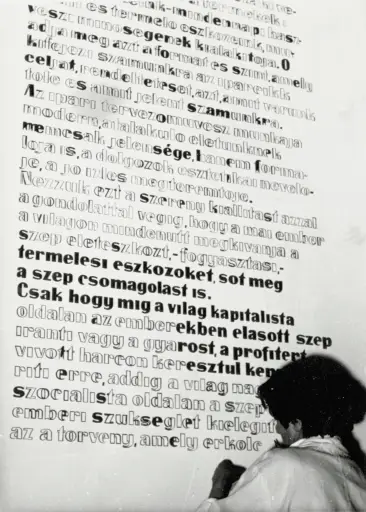 és termelő eszközeink, min-
vész minőségének kialakítója. Ő
adja meg azt a formát és színt, amely
kifejezi számunkra az iparcikk
célját, rendeltetését, azt, amit várunk
tőle és amit jelent számunkra.
Az ipari tervezőművész munkája
modern, átalakuló életünknek
nemcsak jelensége, hanem formá-
lója is, a dolgozók esztétikai nevelő-
je, a jó ízlés megteremtője.
Nézzük ezt a szerény kiállítást azzal
a gondolattal végig, hogy a mai ember
a világon mindenütt megkívánja a
szép életeszközt, -fogyasztási, -
termelési eszközöket, sőt még
a szép csomagolást is.
Csak hogy míg a világ kapitalista
oldalán az emberekben élásott szép
iránti vágy a gyárost, a profitért
vívott harcon keresztül kény
ríti erre, addig a világ na
szocialista oldalán a szép
emberi szükséglet kielégít
az a törvény, amely erkölc